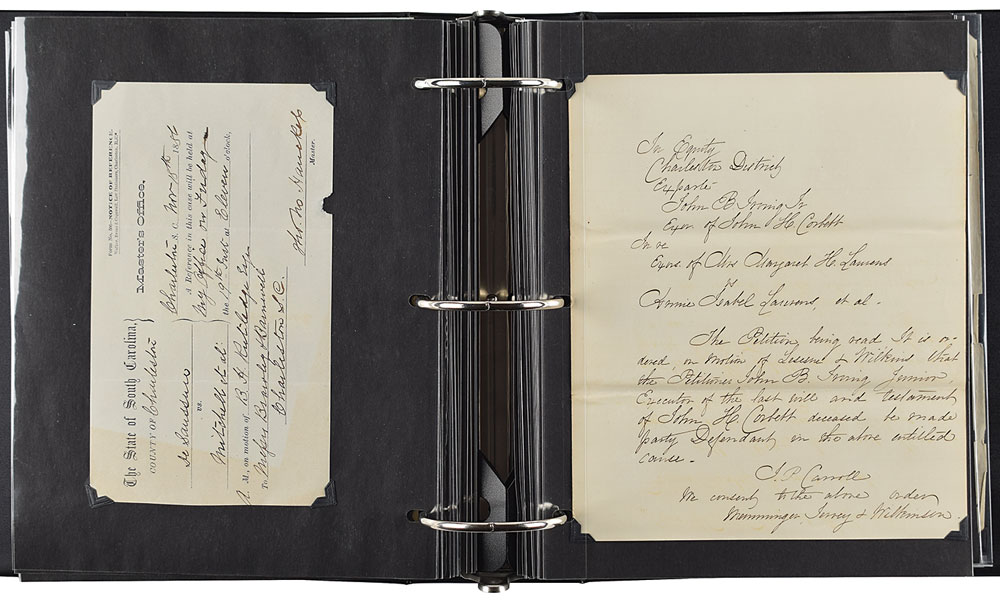 Form No. 86.—NOTICE OF REFERENCE.
Master's Office.
The State of South Carolina,
COUNTY OF Charleston
Charleston S. C. Nov 15th 188
De Saussure
vs.
Mitchell et al.
A Reference in this case will be held at
My Office on Friday
the 19th Inst at Eleven o'clock,
A. M., on motion of B. H. Rutledge Esq
To Messrs Brawley & Barnwell
Charleston S.C.
Master.
In Equity
Charleston District
Exparte
John B Irving Jr
Exor. of John H. Corbett
In re
Exors. of Mrs Margaret H. Laurens
vs
Annie Isabel Laurens, et al.
The Petition being read It is or-
dered, on motion of Lesesne & Wilkins that
the Petitioner John B. Irving Junior,
Executor of the last will and testament
of John H. Corbett deceased be made
party Defendant in the above entitled
cause.
J. P. Carroll
We consent to the above order
Memminger, Jervey & Wilkinson